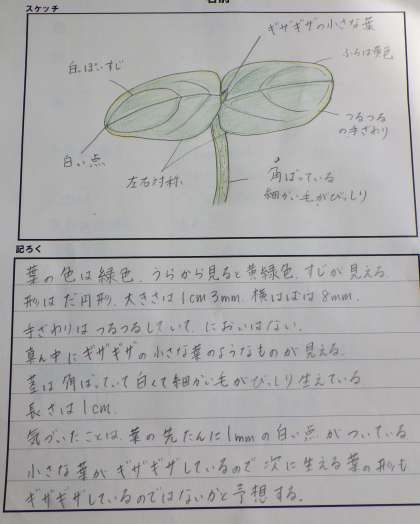 スケッチ
名前
ギザギザの小さな葉
白っぽいすじ
ふちは黄色
つるつる
の手ざわり
白い点
左右対称
角ばっている
細かい毛がびっしり
記ろく
葉の色は緑色、うらから見ると黄緑色、すじが見える。
形はだ円形、大きさは1cm3mm、横はばは8mm。
手ざわりはつるつるしていて、においはない。
真ん中にギザギザの小さな葉のようなものが見える。
茎は角ばっていて白くて細かい毛がびっしり生えている
長さは1cm。
気づいたことは、葉の先たんに1mmの白い点がついている
小さな葉がギザギザしているので次に生える葉の形も
ギザギザしているのではないかと予想する。